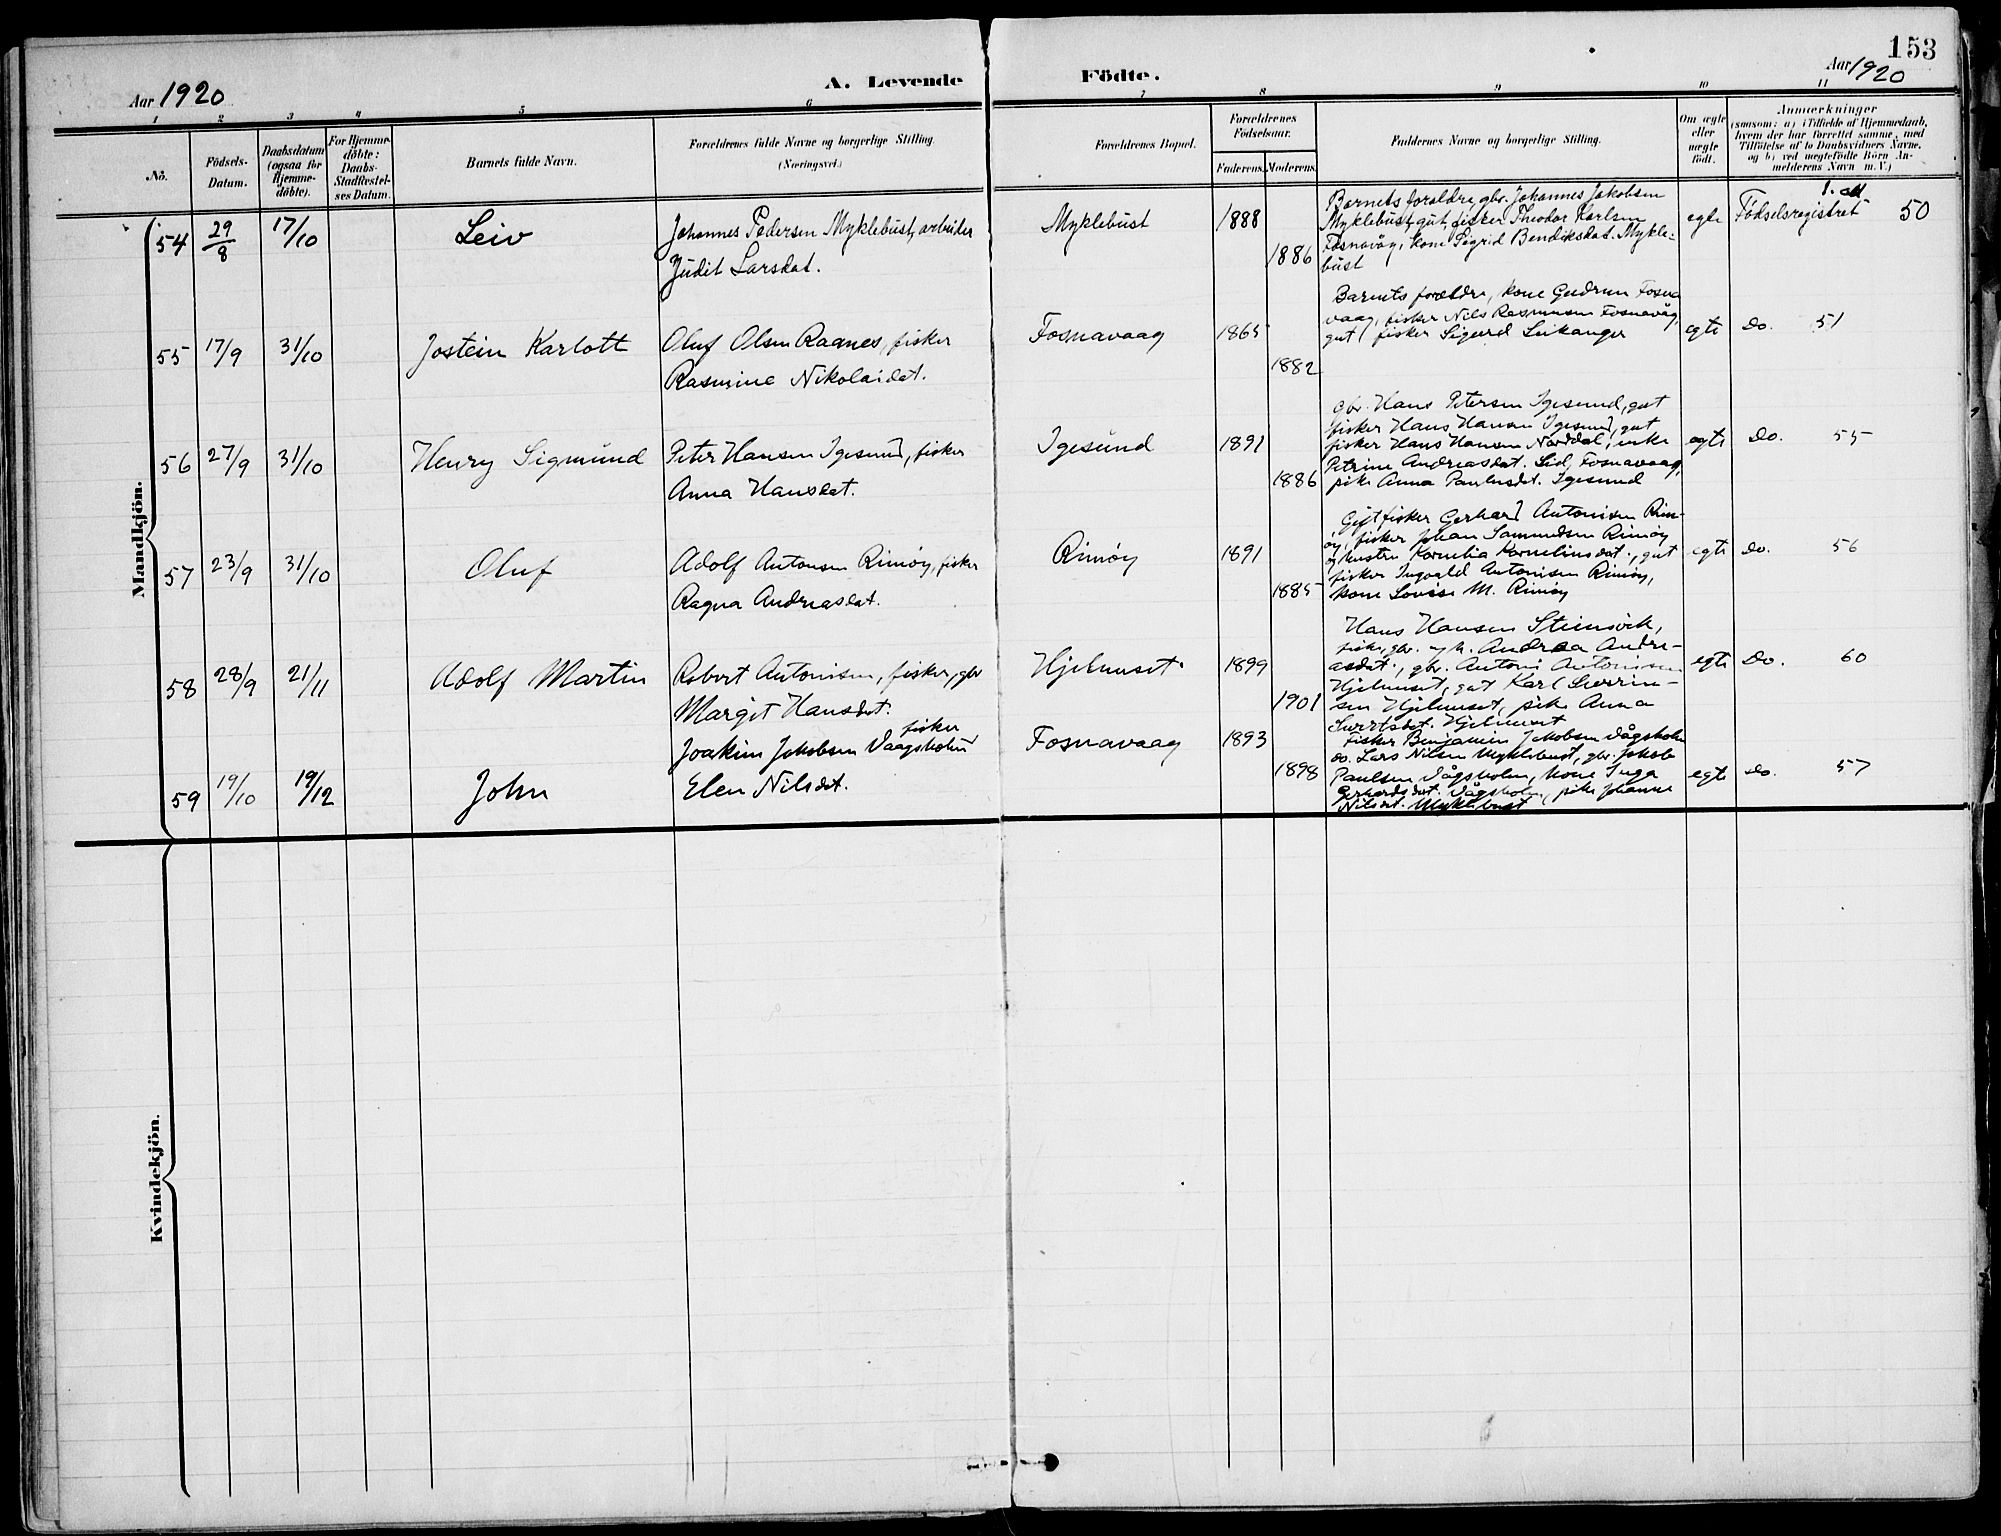 153
Aar 1920
A. Levende Födte.
Aar 1920
1 2 3 4 5 6 7 8 9 10 11
No.
Födsels-
Datum.
Daabsdatum
(ogsaa for
Hjemme-
döbte).
For Hjemme-
döbte:
Daabs-
Stadfæstel-
ses Datum.
Barnets fulde Navn.
Forældrenes fulde Navne og borgerlige Stilling.
(Næringsvei.)
Forældrenes Bopæl.
Forældrenes
Födselsaar.
Faderens. Moderens.
Faddernes Navne og borgerlige Stilling.
Om ægte
eller
uægte
födt.
Anmærkninger
(saasom: a) i Tilfælde af Hjemmedaab,
hvem der har forrettet samme, med
Tilföielse af to Daabsvidners Navne,
og b) ved uegtefödte Börn An-
melderens Navn m. V.)
Mandkjön.
54 29/8 17/10 Leiv
Johannes Pedersen Myklebust, arbeider
Judit Larsdat.
Myklebust 1888
1886
Barnets foreldre, gbr. Johannes Jakobsen
Myklebust, gut, fisker Theodor Karlsen
Fosnavåg, kone Sigrid Bendiksdat. Mykle-
bust
egte
Fødselsregistret 50
55 17/9 31/10 Jostein Karlott
Oluf Olsen Raanes, fisker
Rasmine Nikolaidat.
Fosnavaag 1865
1882
Barnets foreldre, kone Gudrun Fosna
vaag, fisker Nils Rasmusen Fosnavåg,
gut, fisker Sigurd Leikanger
egte do. 51
56 27/9 31/10 Henry Sigmund
Peter Hansen Igesund, fisker
Anna Hansdat.
Igesund 1891
1886
gbr. Hans Petersen Igesund, gut
fisker Hans Hansen Igesund, gut
fisker Hans Hansen Norddal, enke
Petrine Andreasdat. Lid, Fosnavaag,
pike Anna Paulusdt. Igesund
egte do. 55
57 23/9 31/10 Oluf
Adolf Antonsen Rimøy, fisker
Ragna Andreasdat.
Rimøy 1891
1885
Gift fisker Gerhard Antonisen Rim-
øy, fisker Johan Samundsen Rimøy
og hustru Kornelia Korneliusdat., gut
fisker Ingvald Antonisen Rimöy,
kone Lovise M. Rimöy
egte do. 56
58 28/9 21/11 Adolf Martin
Robert Antonisen, fisker, gbr
Margit Hansdt.
Hjelmeset 1899
1901
Hans Hansen Steinsvik,
fisker, gbr. og h. Andrea Andre-
asdat., gbr. Antoni Antonisen
Hjelmeset, gut Karl Sverrin-
sen Hjelmeset, pike Anna
Sivertsdt. Hjelmeset
egte do. 60
59 19/10 19/12 John
fisker
Joakim Jakobsen Vaagsholm
Elen Nilsdt.
Fosnavaag 1893
1898
fisker Benjamin Jakobsen Vågsholm
do. Lars Nilsen Myklebust, gbr. Jakob
Paulsen Vågsholm, kone Inga
Gerhardsdat. Vågsholm, pike Johanne
Nilsdt. Myklebust
egte do. 57
Kvindekjön.